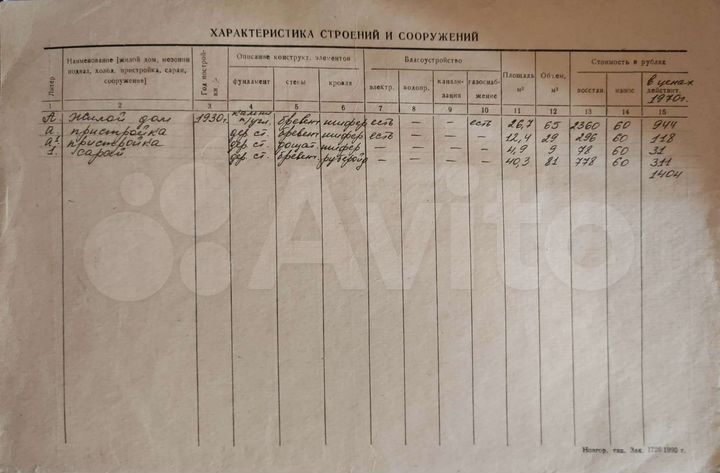 ХАРАКТЕРИСТИКА СТРОЕНИЙ И СООРУЖЕНИЙ
Литер Наименование [жилой дом, мезонин подвал, холод. пристройка, сарай, сооружение] Год постройки Описание конструкт. элементов Благоустройство Площадь, м² Объем, м³ Стоимость в рублях
фундамент стены кровля электр. водопр. канализация газоснабжение восстан. износ в ценах действит. 1970г.
1 2 3 4 5 6 7 8 9 10 11 12 13 14 15
А. Жилой дом 1930г. бревент шифер есть — — есть 26,7 65 2360 60 944
а пристройка дер. ст. бревент шифер есть — — — 12,4 29 296 60 118
а¹ пристройка дер. ст. дощат. шифер — — — — 4,9 9 78 60 31
1. сарай дер. ст. бревент. рубероид — — — — 40,3 81 778 60 311
1404
Avito
Новгор. тип. Зак. 1726 1990 г.